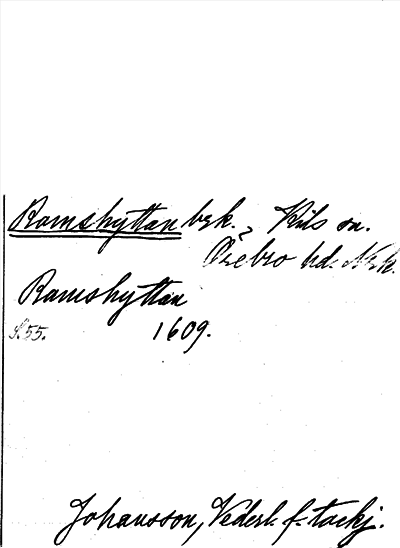 Ramshyttan brk., Kils sn.
Örebro hd. Nrk.
Ramshyttan
S. 55. 1609.
Johansson, Vederl. f. tackj.